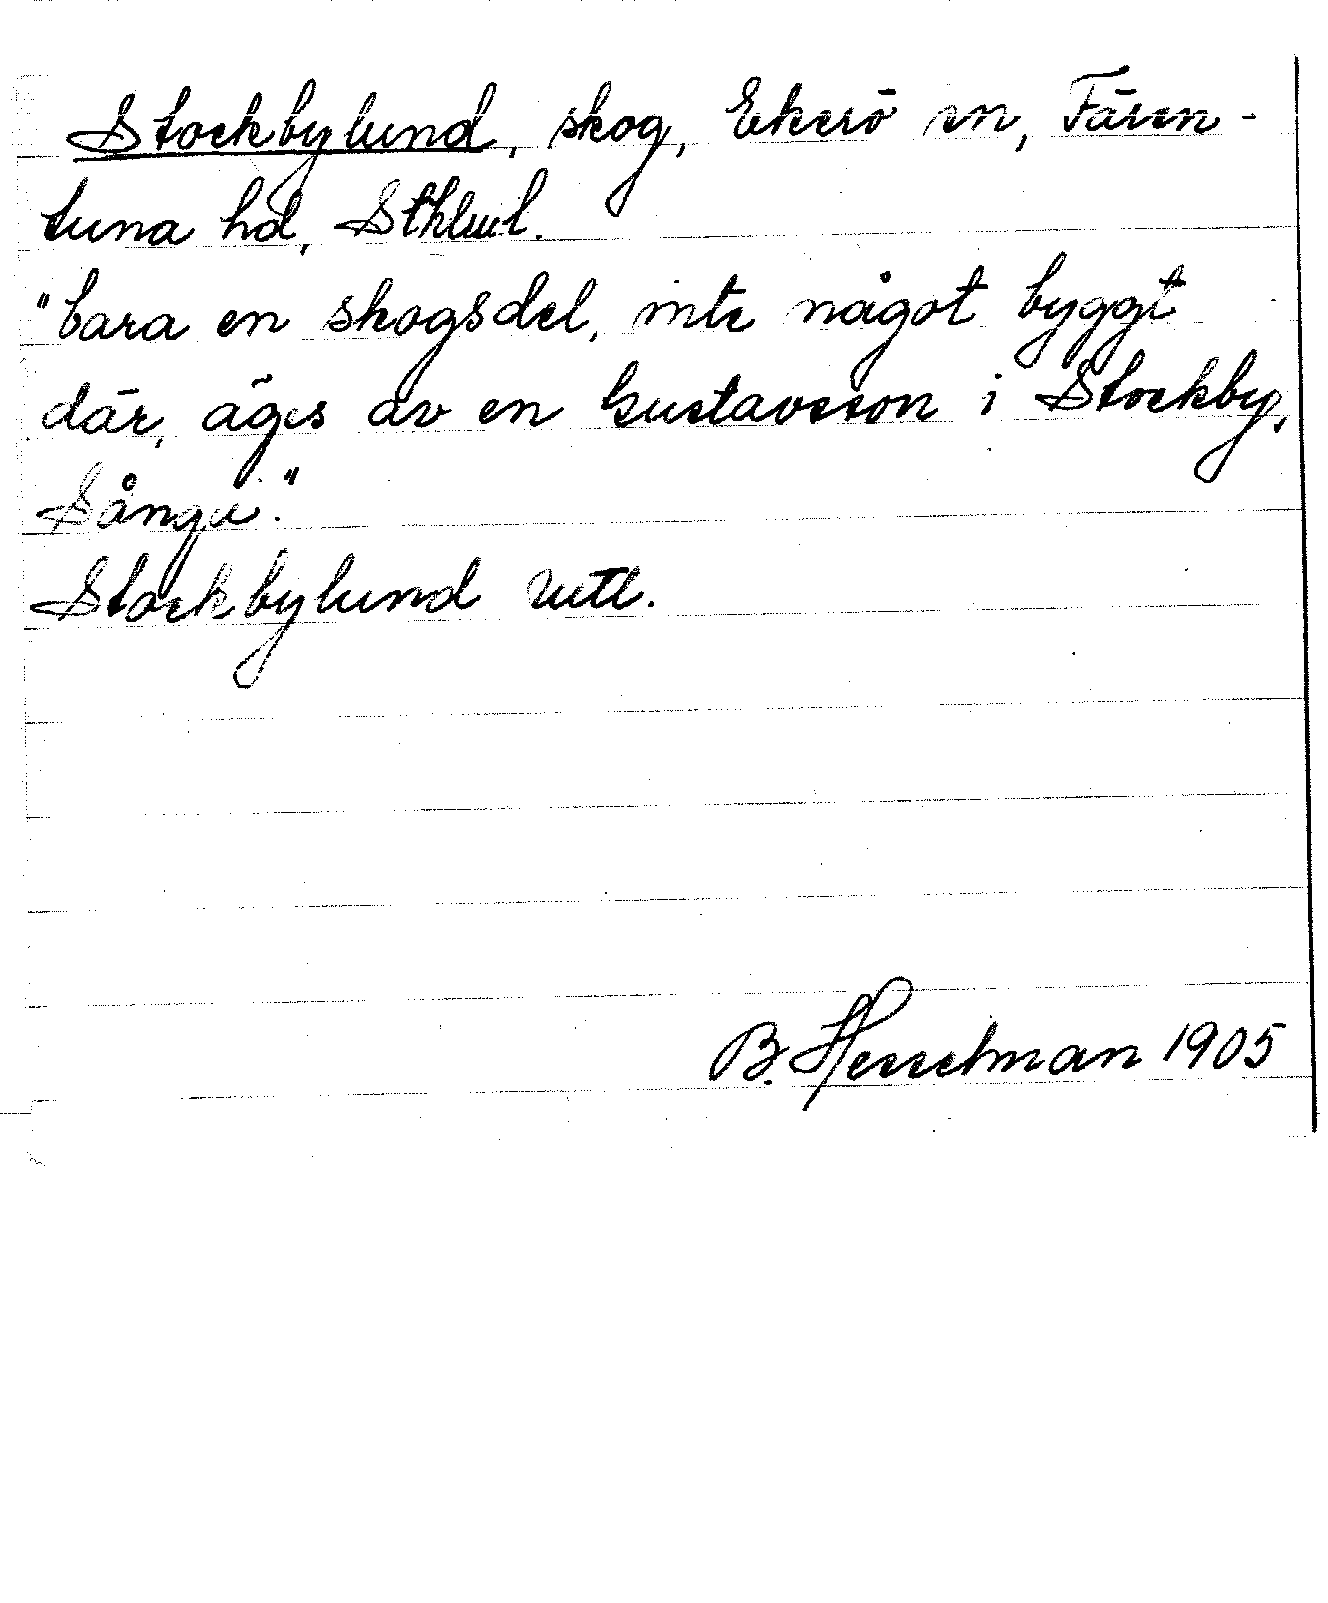 Stockbylund, skog, Ekerö sn, Fären-
tuna hd, Sthlm l.
"bara en skogsdel, inte något byggt
där, äges av en Gustavsson i Stockby,
Sånga."
Stockbylund uttl.
B. Hesselman 1905